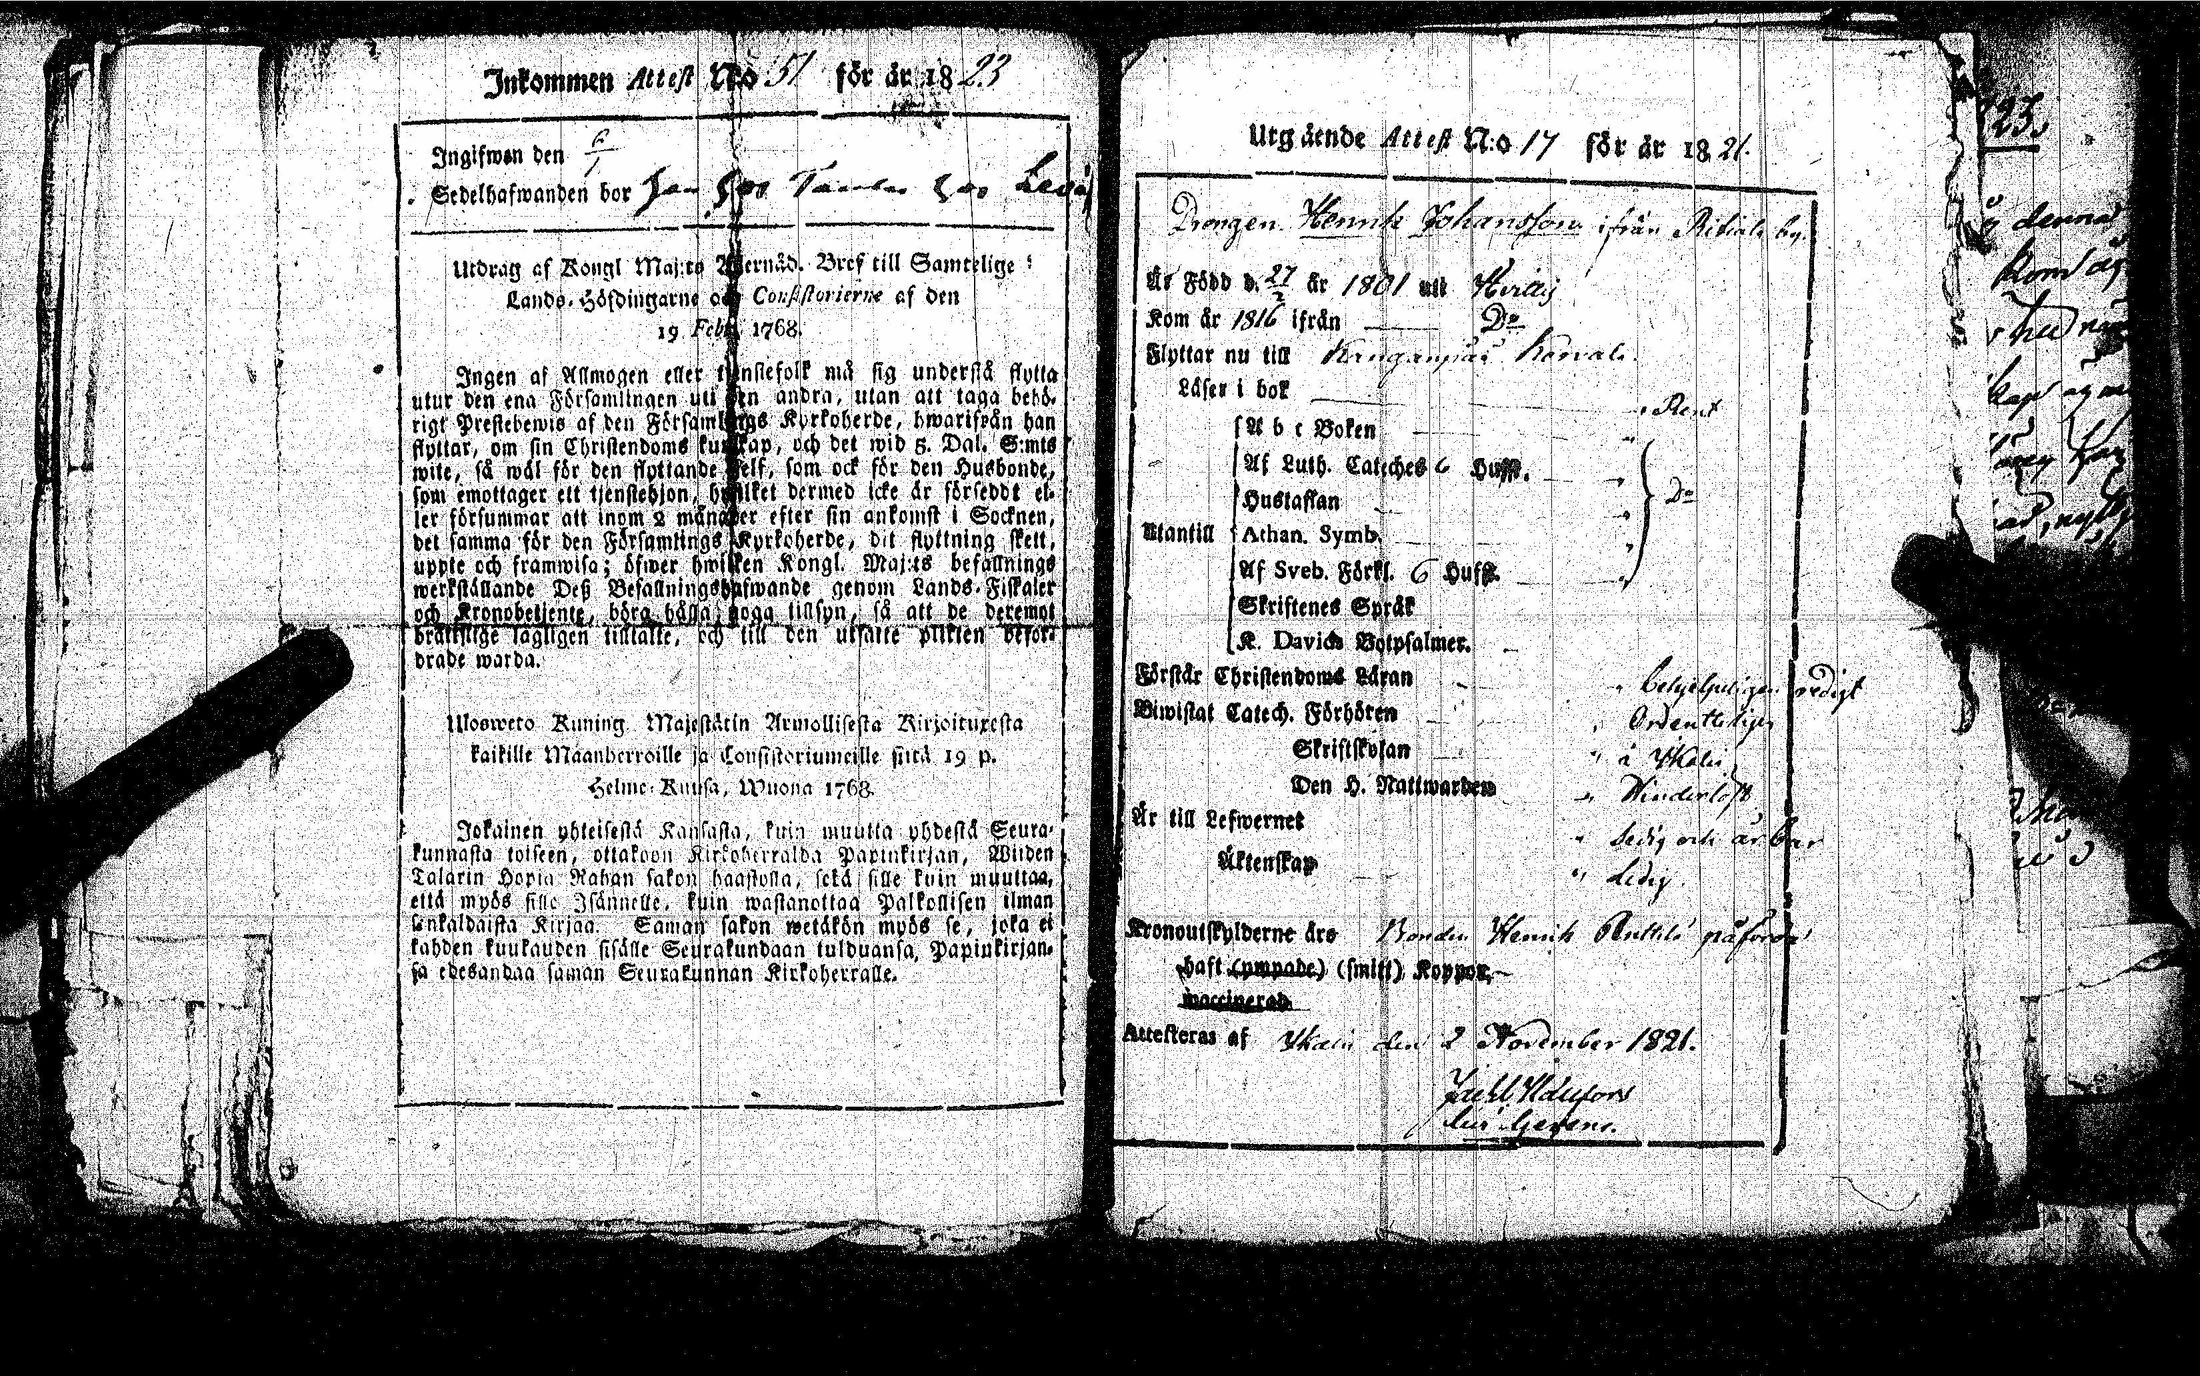 Inkommen Attest N:o 51 för år 1823
Ingifwen den 6/1
Sedelhafwanden bor
Utdrag af Kongl Maj:ts Allernåd. Bref till Samtelige
Lands-Höfdingarne och Consistorierne af den
19 Febr. 1768.
Ingen af Allmogen eller tjenstefolk må sig understå flytta
utur den ena Församlingen uti den andra, utan att taga behö-
rigt Prestebewis af den Församlings Kyrkoherde, hwarifrån han
flyttar, om sin Christendoms kunskap, och det wid 5. Dal. S:mts
wite, så wäl för den flyttande self, som ock för den Husbonde,
som emottager ett tjenstehjon, hwilket dermed icke är försedt el-
ler försummar att inom 2 månader efter sin ankomst i Socknen,
det samma för den Församlings Kyrkoherde, dit flyttning skett,
uppte och framwisa; öfwer hwilken Kongl. Maj:ts befallnings
werkställande Deß Befallningshafwande genom Lands-Fiskaler
och Kronobetjente, böra hålla noga tillsyn, så att de deremot
bråttslige lagligen tilltalte, och till den utsatte plikten befor-
drade warda.
Ulosweto Kuning. Majestätin Armollisesta Kirjoituxesta
kaikille Maanherroille ja Consistoriumeille siitä 19 p.
Helme-Kuusa, Wuona 1768.
Jokainen yhteisestä Kansasta, kuin muutta yhdestä Seura-
kunnasta toiseen, ottakoon Kirkoherralda Papinkirjan, Wiiden
Talarin Hopia Rahan sakon haastolla, sekä sille kuin muuttaa,
että myös sille Isännelle, kuin wastanottaa Palkollisen ilman
senkaldaista Kirjaa. Saman sakon wetäkön myös se, joka ei
kahden kuukauden sisälle Seurakundaan tulduansa, Papinkirjan-
sa edesandaa saman Seurakunnan Kirkoherralle.
Utgående Attest N:o 17 för år 1821.
Drengen Henrik Johansson ifrån by.
Är Född d. 27/2 år 1801 uti
Kom år 1816 ifrån D:o
Flyttar nu till
Läser i bok Rent
A b c Boken
Af Luth. Cateches 6 Huff.
Hustaflan D:o
Utantill Athan. Symb.
Af Sveb. Förkl. 6 Huff.
Skriftenes Språk
K. Davids Botpsalmer.
Förstår Christendoms Läran behjelpeligen redigt
Biwistat Catech. Förhören Ordenteligen
Skriftskolan i
Den H. Nattwarden
Är till Lefwernet sedig och ärbar
Äktenskap Ledig
Kronoutskylderne äro Bonden Henrik påförde
haft (ympade) (smitt) Koppor,
waccinerad
Attesteras af den 2 November 1821.